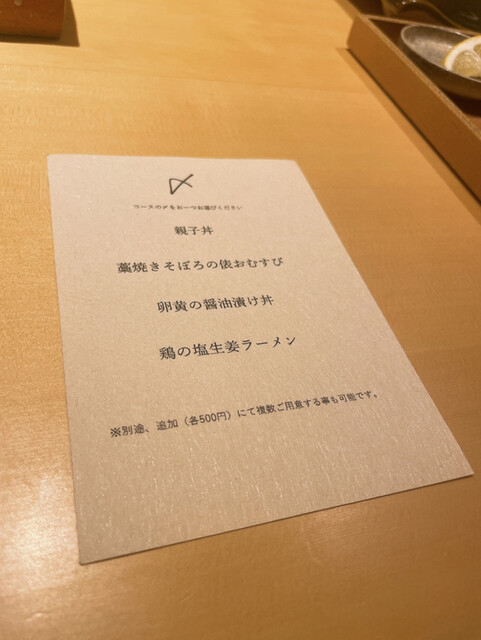 〆
コースの〆をお一つお選びください
親子丼
藁焼きそぼろの俵おむすび
卵黄の醤油漬け丼
鶏の塩生姜ラーメン
※別途、追加（各500円）にて複数ご用意する事も可能です。